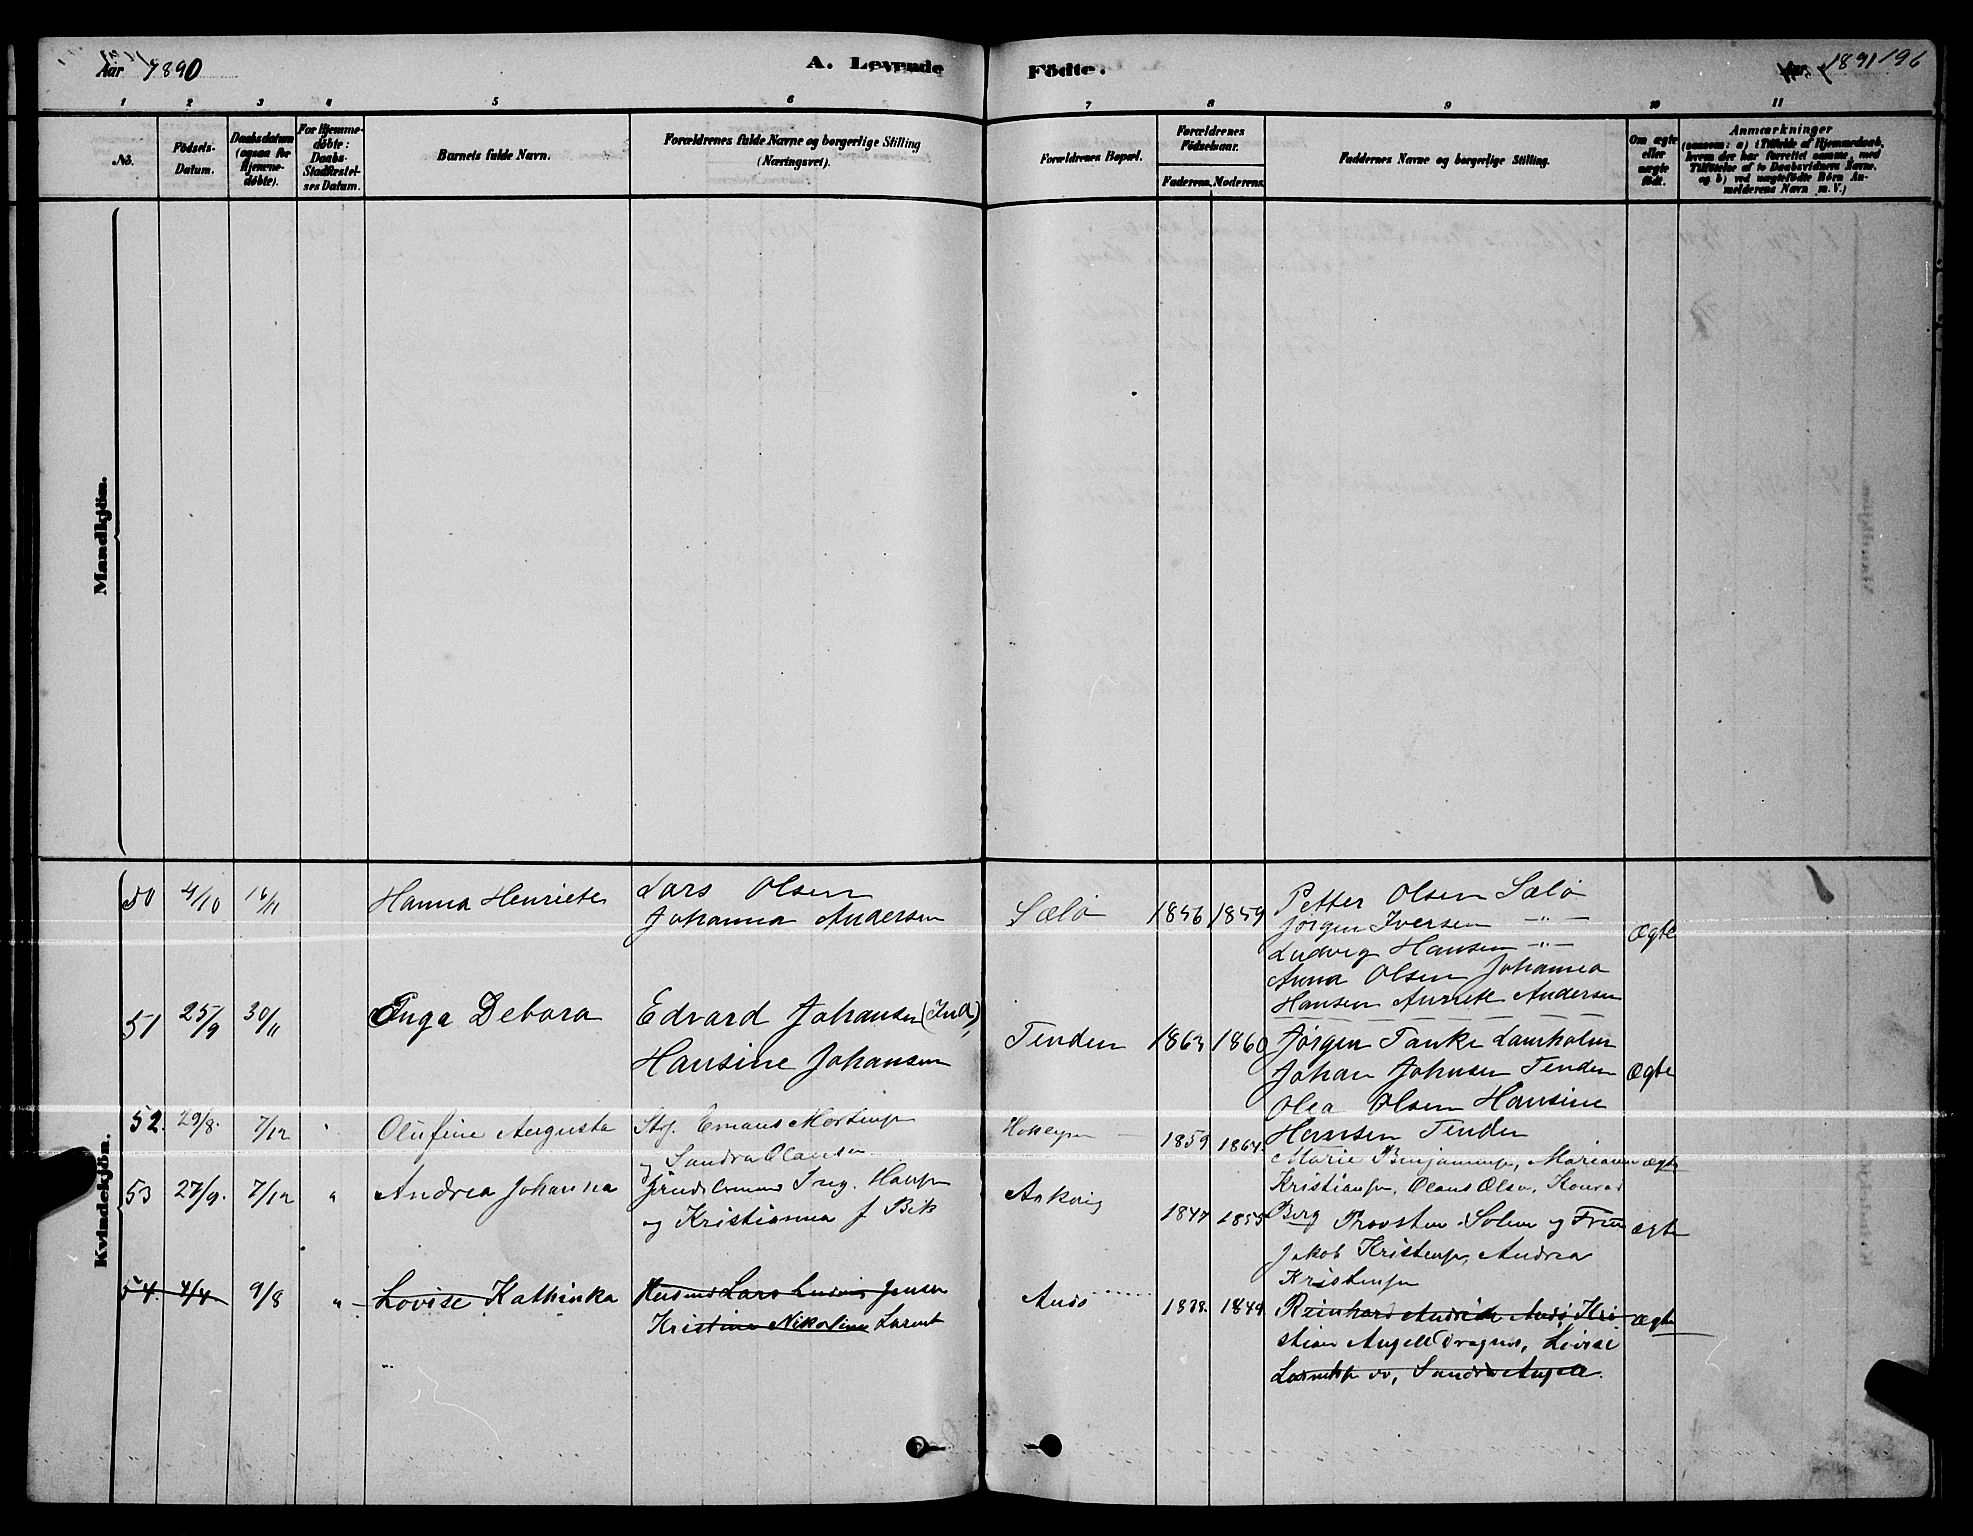 Aar 1890
A. Levende
Födte.
1891 196
1 2 3 4 5 6 7 8 9 10 11
No.
Födsels-Datum.
Daabsdatum (ogsaa for Hjemme-døbte).
For Hjemme-døbte: Daabs-Stadfæstel-ses Datum.
Barnets fulde Navn.
Forældrenes fulde Navne og borgerlige Stilling (Næringsvei).
Forældrenes Bopæl.
Forældrenes Födselsaar.
Faderens. Moderens.
Faddernes Navne og borgerlige Stilling.
Om ægte eller uægte født.
Anmærkninger
(saasom: a) i Tilfælde af Hjemmedaab,
hvem der har forrettet samme, med
Tilföielse af to Daabsvidners Navne.
og b) ved uægtefødte Börn An-
melderens Navn m. V.)
Mandkjön.
Kvindekjön.
50 4/10 16/11 Hanna Henriete Lars Olsen
Johanna Andersen
Sælö 1856 1859 Petter Olsen Sælö
Jørgen Iversen —"—
Ludvig Hansen —"—
Anna Olsen Johanna
Hansen Anriete Andersen
Ægte
51 25/9 30/11 Inga Debora Edvard Johansen (Ind)
Hansine Johansen
Tenden 1863 1860 Jørgen Tanke
Johan Johnsen Tenden
Olea Olsen Hansine
Hansen Tenden
Ægte
52. 29/8. 7/12 " Olufine Augusta Emans
og Sandra Olausen
1859 1864. Marie
Olaus Olsen, Konrad
Berg
ægte
53 27/9. 7/12 " Andrea Johanna
og Kristianna f
1847 1855 Provsten Solem og Frue
Jakob Andrea
ægte
54. 4/4 9/8 " Lovise Kathinka Lars Jensen
Kristine Nikoline
Andö 1838. 1849. Reinhard
Lovise
Sandra Angell.
ægte